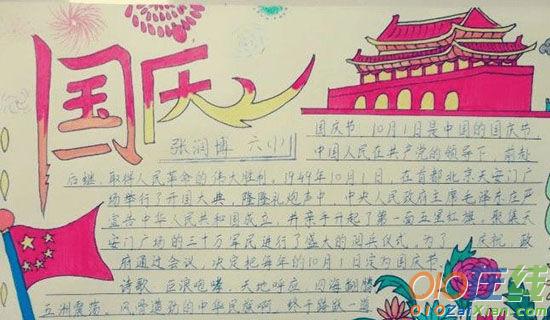 国庆
张润博 六(1)
国庆节，10月1日是中国的国庆节，
中国人民在共产党的领导下，前赴
后继，取得人民革命的伟大胜利，1949年10月1日，在首都北京天安门广
场举行了开国大典，隆隆礼炮声中，中央人民政府主席毛泽东庄严
宣告中华人民共和国成立，并亲手升起了第一面五星红旗，聚集天
安门广场的三十万军民进行了盛大的阅兵仪式，为了 庆祝，政
府通过会议，决定把每年的10月1日定为国庆节。
诗歌：巨浪咆哮，天地呼应，四海翻腾
五洲震荡，风雷激动的中华民族啊，终于
在线
ZaiXian.com